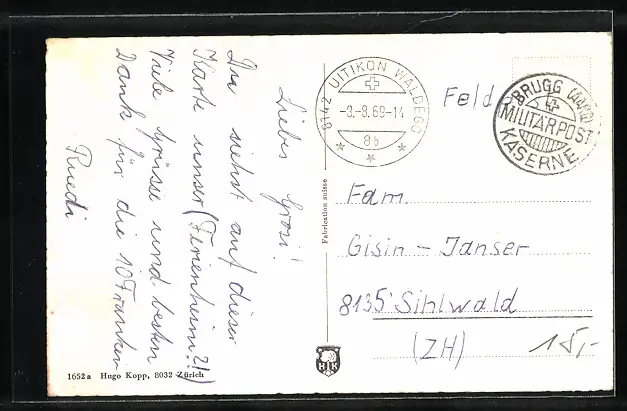 Liebes Grosi!
Du siehst auf dieser
Karte unser (Ferienheim?!)
Viele Grüsse und besten
Dank für die 10 Franken
Ruedi
1652a Hugo Kopp, 8032 Zürich
Fabrication suisse
HK
8142 UITIKON WALDEGG
-8.-8.69-14
8b
Feld
BRUGG (AARG)
MILITÄRPOST
KASERNE
Fam.
Gisin - Janser
8135 Sihlwald
(ZH)
15,-